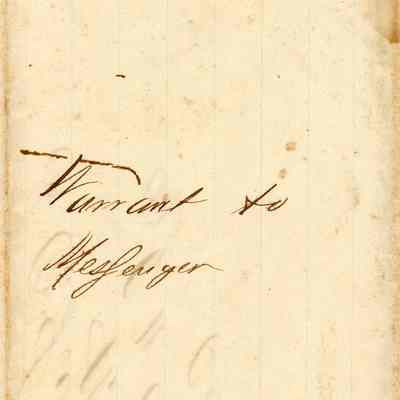 Warrant to
Messenger